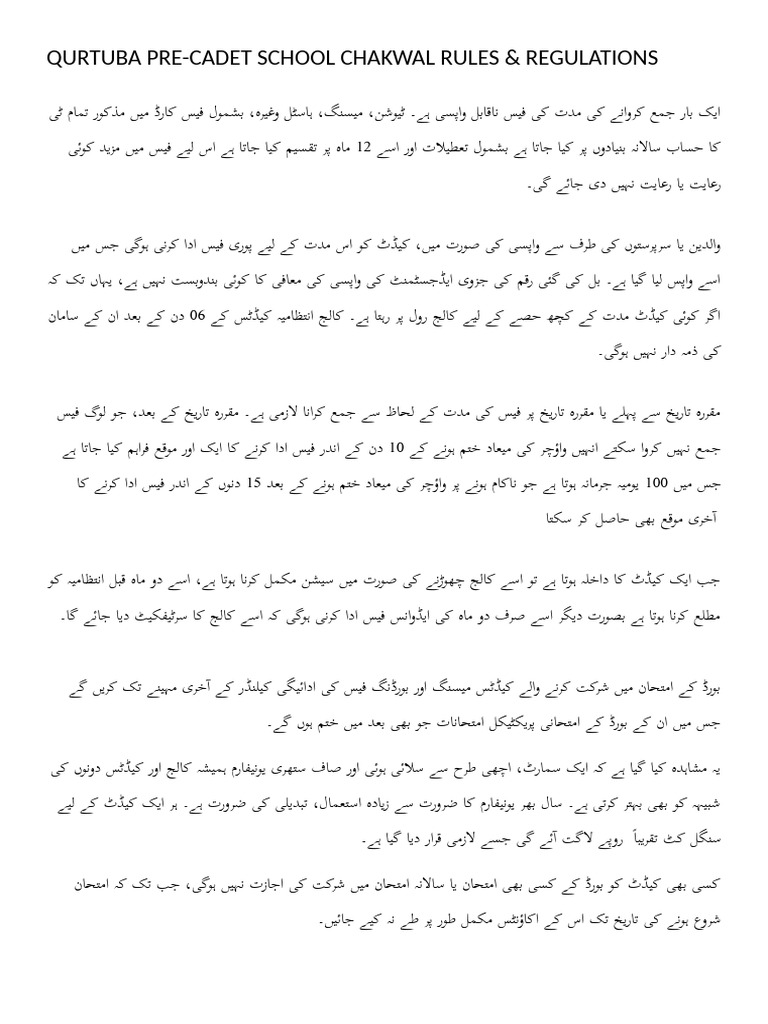 QURTUBA PRE-CADET SCHOOL CHAKWAL RULES & REGULATIONS
ایک بار جمع کروانے کی مدت کی فیس ناقابل واپسی ہے۔ ٹیوشن، میسنگ، ہاسٹل وغیرہ، بشمول فیس کارڈ میں مذکور تمام ٹی
کا حساب سالانہ بنیادوں پر کیا جاتا ہے بشمول تعطیلات اور اسے 12 ماہ پر تقسیم کیا جاتا ہے اس لیے فیس میں مزید کوئی
رعایت یا رعایت نہیں دی جائے گی۔
والدین یا سرپرستوں کی طرف سے واپسی کی صورت میں، کیڈٹ کو اس مدت کے لیے پوری فیس ادا کرنی ہوگی جس میں
اسے واپس لیا گیا ہے۔ بل کی گئی رقم کی جزوی ایڈجسٹمنٹ کی واپسی کی معافی کا کوئی بندوبست نہیں ہے، یہاں تک کہ
اگر کوئی کیڈٹ مدت کے کچھ حصے کے لیے کالج رول پر رہتا ہے۔ کالج انتظامیہ کیڈٹس کے 06 دن کے بعد ان کے سامان
کی ذمہ دار نہیں ہوگی۔
مقررہ تاریخ سے پہلے یا مقررہ تاریخ پر فیس کی مدت کے لحاظ سے جمع کرانا لازمی ہے۔ مقررہ تاریخ کے بعد، جو لوگ فیس
جمع نہیں کروا سکتے انہیں واؤچر کی میعاد ختم ہونے کے 10 دن کے اندر فیس ادا کرنے کا ایک اور موقع فراہم کیا جاتا ہے
جس میں 100 یومیہ جرمانہ ہوتا ہے جو ناکام ہونے پر واؤچر کی میعاد ختم ہونے کے بعد 15 دنوں کے اندر فیس ادا کرنے کا
آخری موقع بھی حاصل کر سکتا
جب ایک کیڈٹ کا داخلہ ہوتا ہے تو اسے کالج چھوڑنے کی صورت میں سیشن مکمل کرنا ہوتا ہے، اسے دو ماہ قبل انتظامیہ کو
مطلع کرنا ہوتا ہے بصورت دیگر اسے صرف دو ماہ کی ایڈوانس فیس ادا کرنی ہوگی کہ اسے کالج کا سرٹیفکیٹ دیا جائے گا۔
بورڈ کے امتحان میں شرکت کرنے والے کیڈٹس میسنگ اور بورڈنگ فیس کی ادائیگی کیلنڈر کے آخری مہینے تک کریں گے
جس میں ان کے بورڈ کے امتحانی پریکٹیکل امتحانات جو بھی بعد میں ختم ہوں گے۔
یہ مشاہدہ کیا گیا ہے کہ ایک سمارٹ، اچھی طرح سے سلائی ہوئی اور صاف ستھری یونیفارم ہمیشہ کالج اور کیڈٹس دونوں کی
شبیہہ کو بھی بہتر کرتی ہے۔ سال بھر یونیفارم کا ضرورت سے زیادہ استعمال، تبدیلی کی ضرورت ہے۔ ہر ایک کیڈٹ کے لیے
سنگل کٹ تقریباً روپے لاگت آئے گی جسے لازمی قرار دیا گیا ہے۔
کسی بھی کیڈٹ کو بورڈ کے کسی بھی امتحان یا سالانہ امتحان میں شرکت کی اجازت نہیں ہوگی، جب تک کہ امتحان
شروع ہونے کی تاریخ تک اس کے اکاؤنٹس مکمل طور پر طے نہ کیے جائیں۔